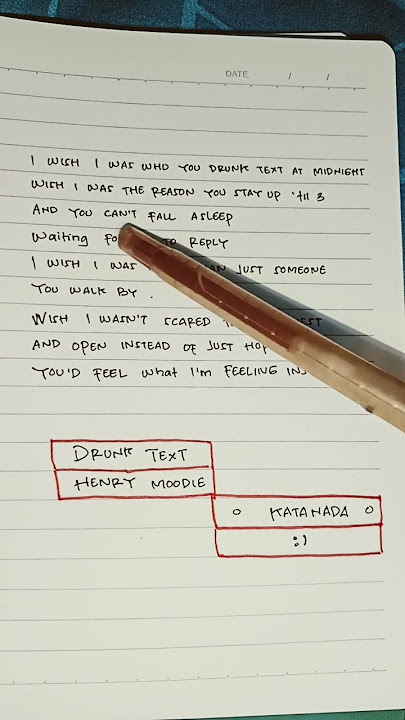 DATE / /
I WISH I WAS WHO YOU DRUNK TEXT AT MIDNIGHT
WISH I WAS THE REASON YOU STAY UP 'till 3
AND YOU CAN'T FALL ASLEEP
Waiting TO REPLY
I WISH I WAS JUST SOMEONE
YOU WALK BY .
WISH I WASN'T SCARED
AND OPEN INSTEAD OF JUST
YOU'D FEEL what I'm FEELING
DRUNK TEXT
HENRY MOODIE
KATANADA
:)